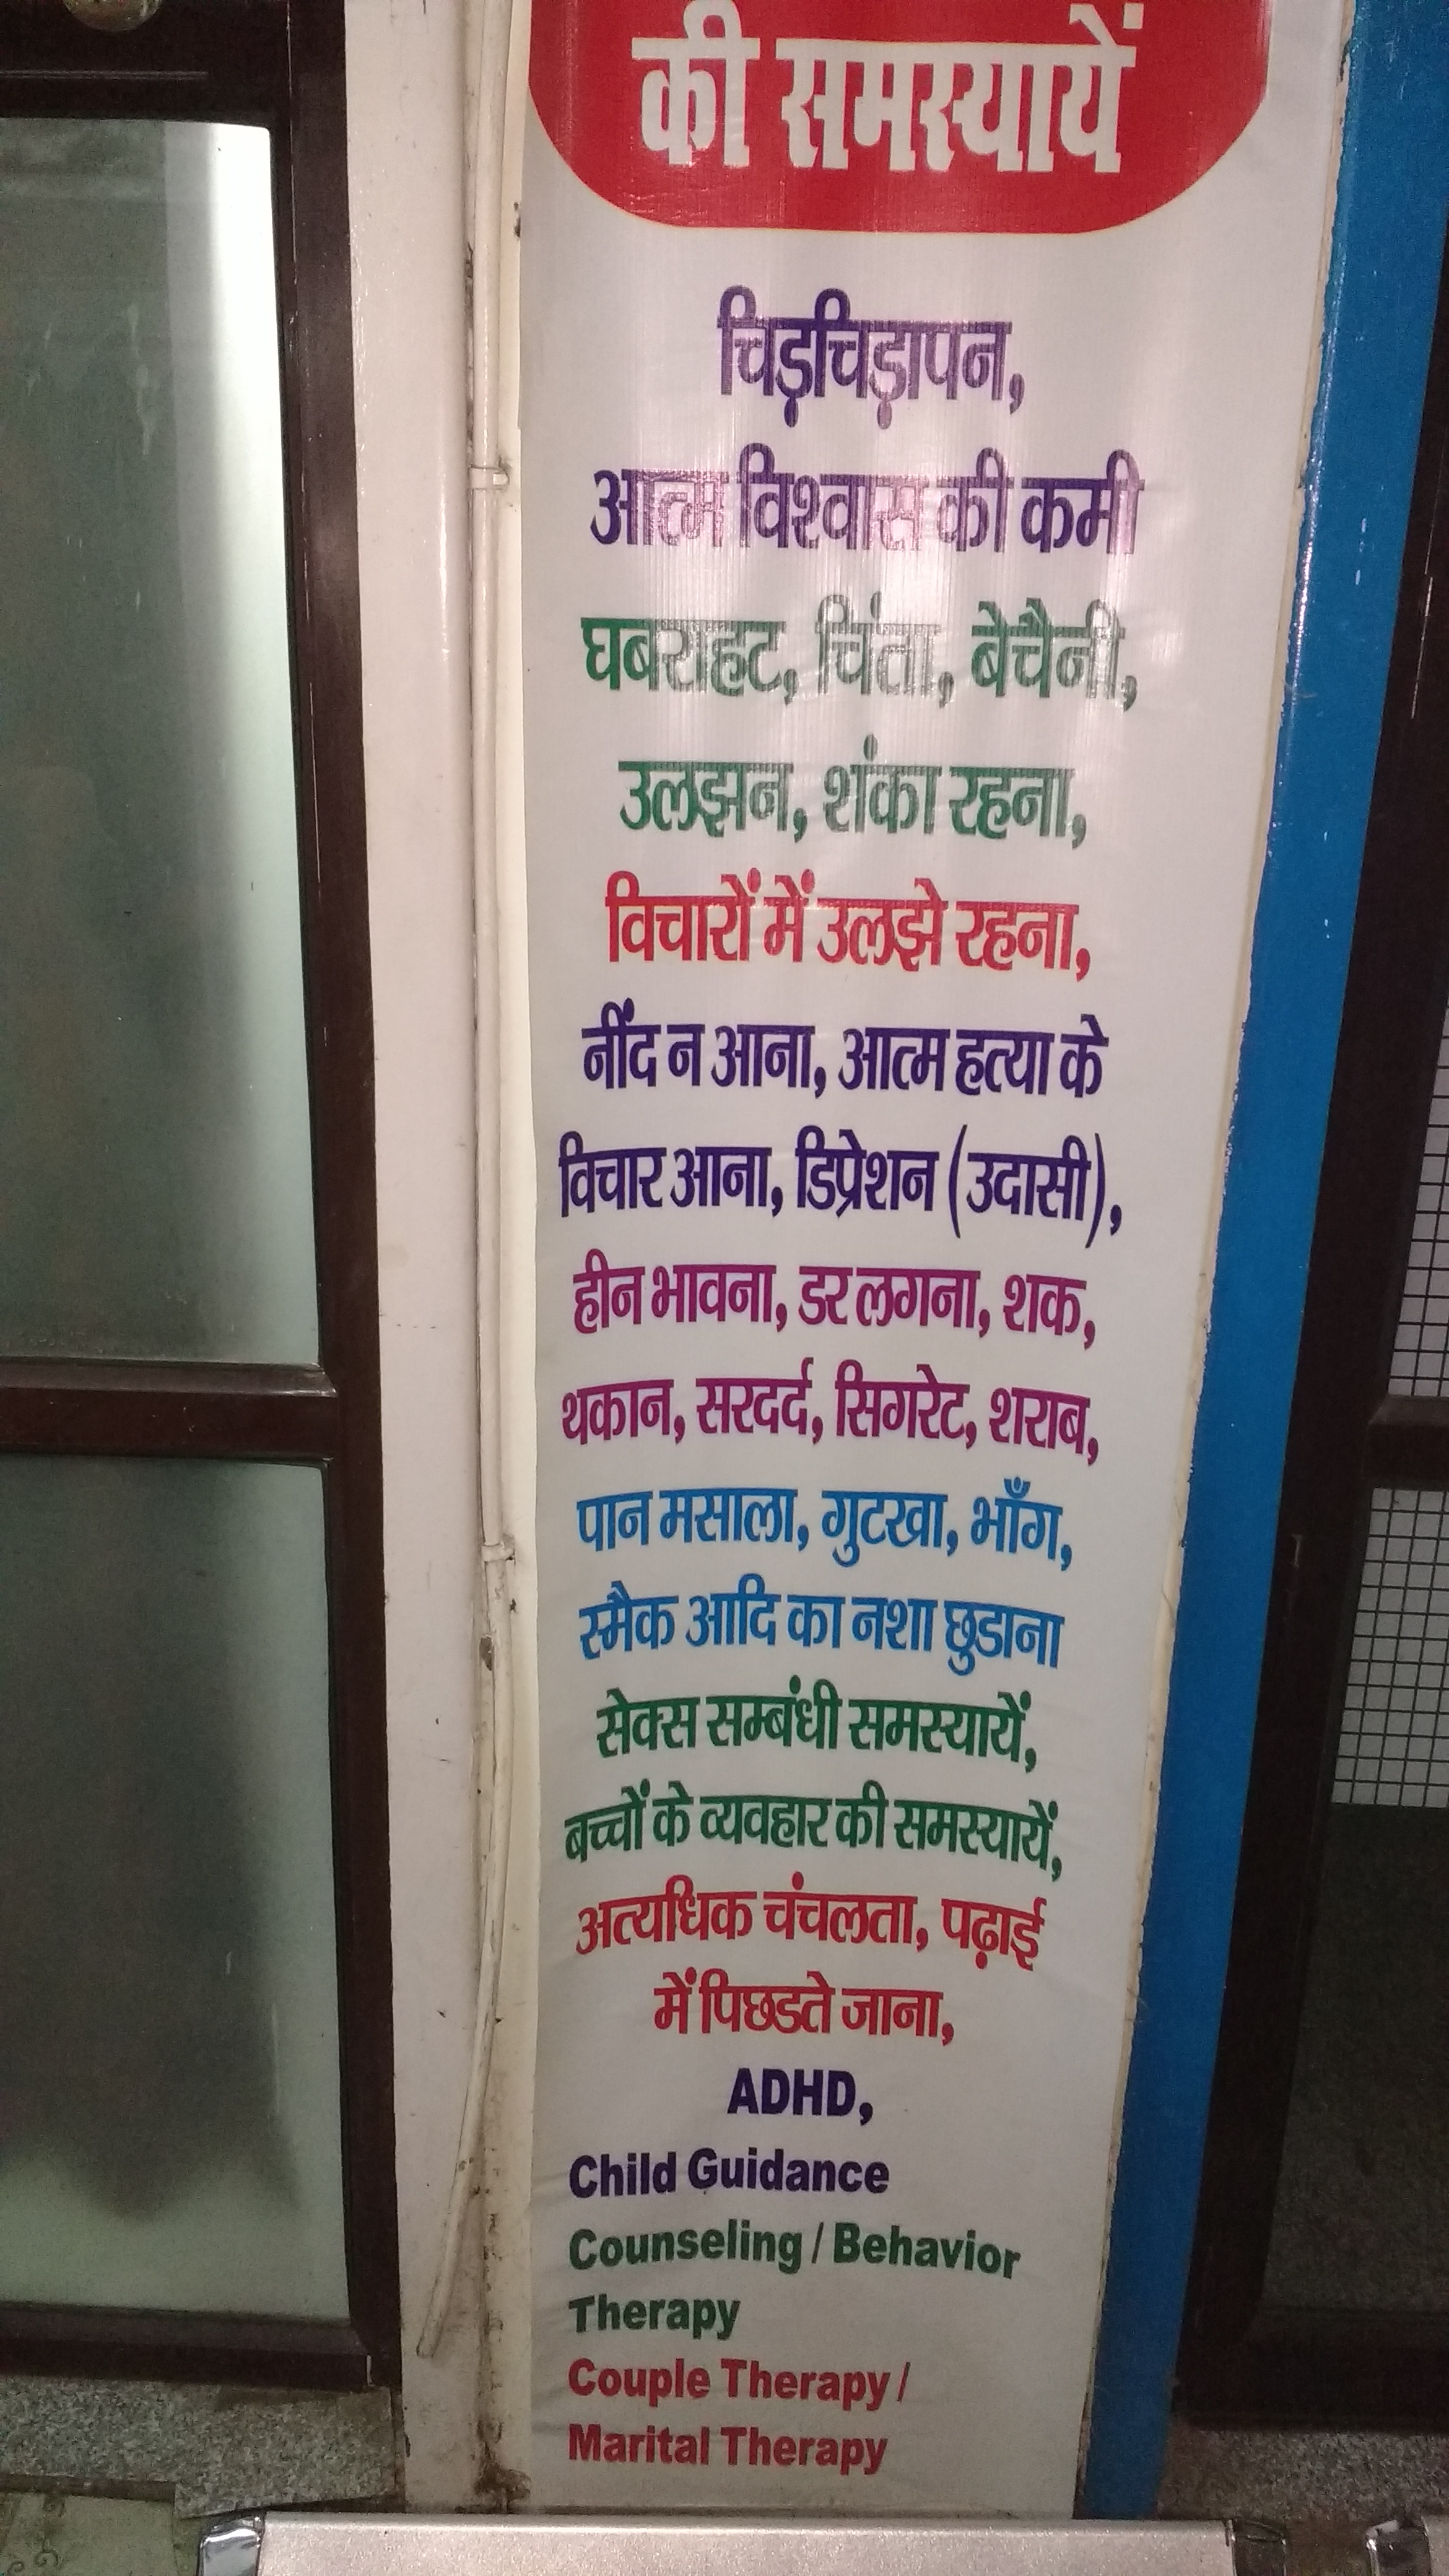 की समस्यायें
चिड़चिड़ापन,
आत्म विश्वास की कमी
घबराहट, चिंता, बेचैनी,
उलझन, शंका रहना,
विचारों में उलझे रहना,
नींद न आना, आत्म हत्या के
विचार आना, डिप्रेशन (उदासी),
हीन भावना, डर लगना, शक,
थकान, सरदर्द, सिगरेट, शराब,
पान मसाला, गुटखा, भाँग,
स्मैक आदि का नशा छुडाना
सेक्स सम्बंधी समस्यायें,
बच्चों के व्यवहार की समस्यायें,
अत्यधिक चंचलता, पढ़ाई
में पिछडते जाना,
ADHD,
Child Guidance
Counseling / Behavior
Therapy
Couple Therapy /
Marital Therapy